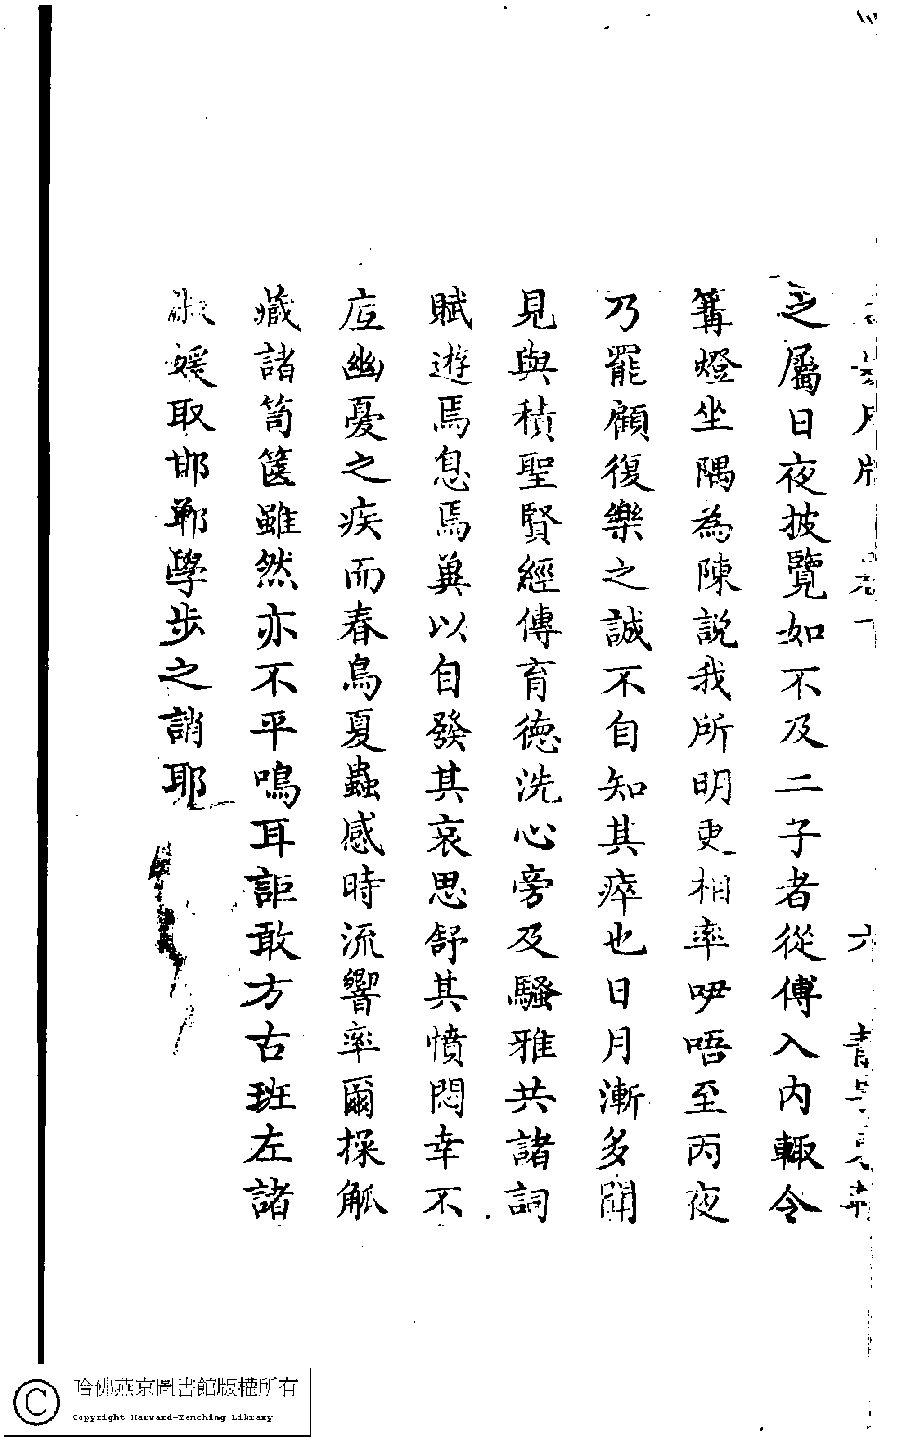 之屬日夜披覽如不及二子者從傅入內輙令
篝燈坐隅為陳說我所明更相率咿唔至丙夜
乃罷顧復樂之誠不自知其瘁也日月漸多聞
見與積聖賢經傳育德洗心旁及騷雅共諸詞
賦遊焉息焉冀以自發其哀思舒其憤悶幸不
底幽憂之疾而春鳥夏蟲感時流響率爾操觚
藏諸笥篋雖然亦不平鳴耳詎敢方古班左諸
淑媛取邯鄲學步之誚耶
哈佛燕京圖書館版權所有
Copyright Harvard-Yenching Library